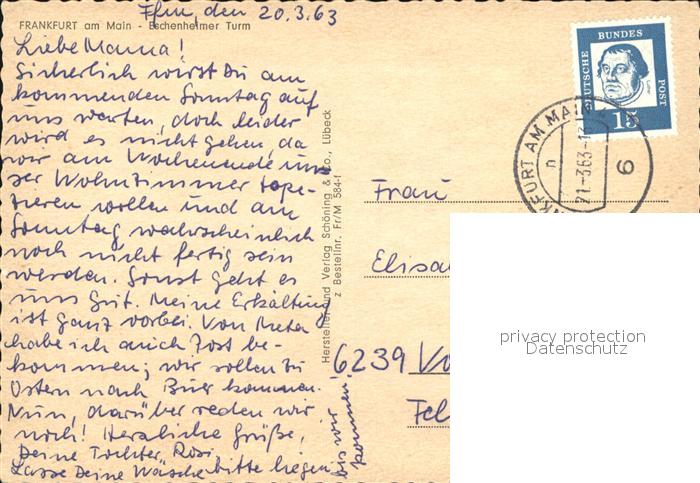 Ffm, den 20.3.63
FRANKFURT am Main - Eschenheimer Turm
Liebe Mama!
Sicherlich wirst Du am
kommenden Sonntag auf
uns warten, doch leider
wird es nicht gehen, da
wir am Wochenende un-
ser Wohnzimmer tape-
zieren wollen und am
Sonntag wahrscheinlich
noch nicht fertig sein
werden. Sonst geht es
uns gut. Meine Erkältung
ist ganz vorbei. Von
habe ich auch Post be-
kommen; wir sollen zu
Ostern nach Buer kommen.
Nun, darüber reden wir
noch! Herzliche Grüße,
Deine Tochter Rosi
Lasse Deine Wäsche bitte liegen
bis wir
kommen.
Hersteller und Verlag Schöning & Co., Lübeck
z Bestellnr. Fr/M 584-f
DEUTSCHE BUNDES POST
Luther
15
FRANKFURT AM MAIN
21.-3.63-13
n
6
Frau
Elisa
6239
privacy protection
Datenschutz